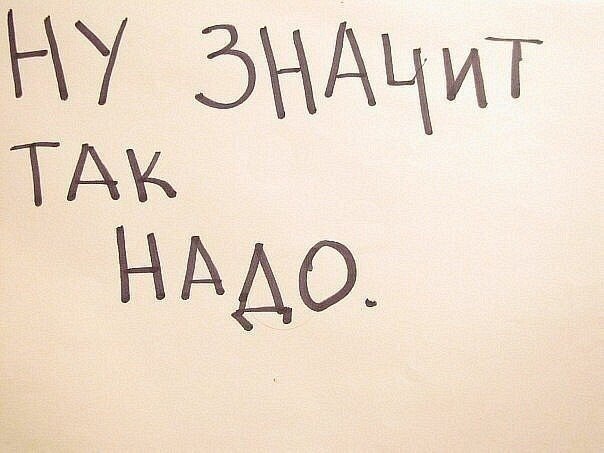 НУ ЗНАЧИТ
ТАК
НАДО.